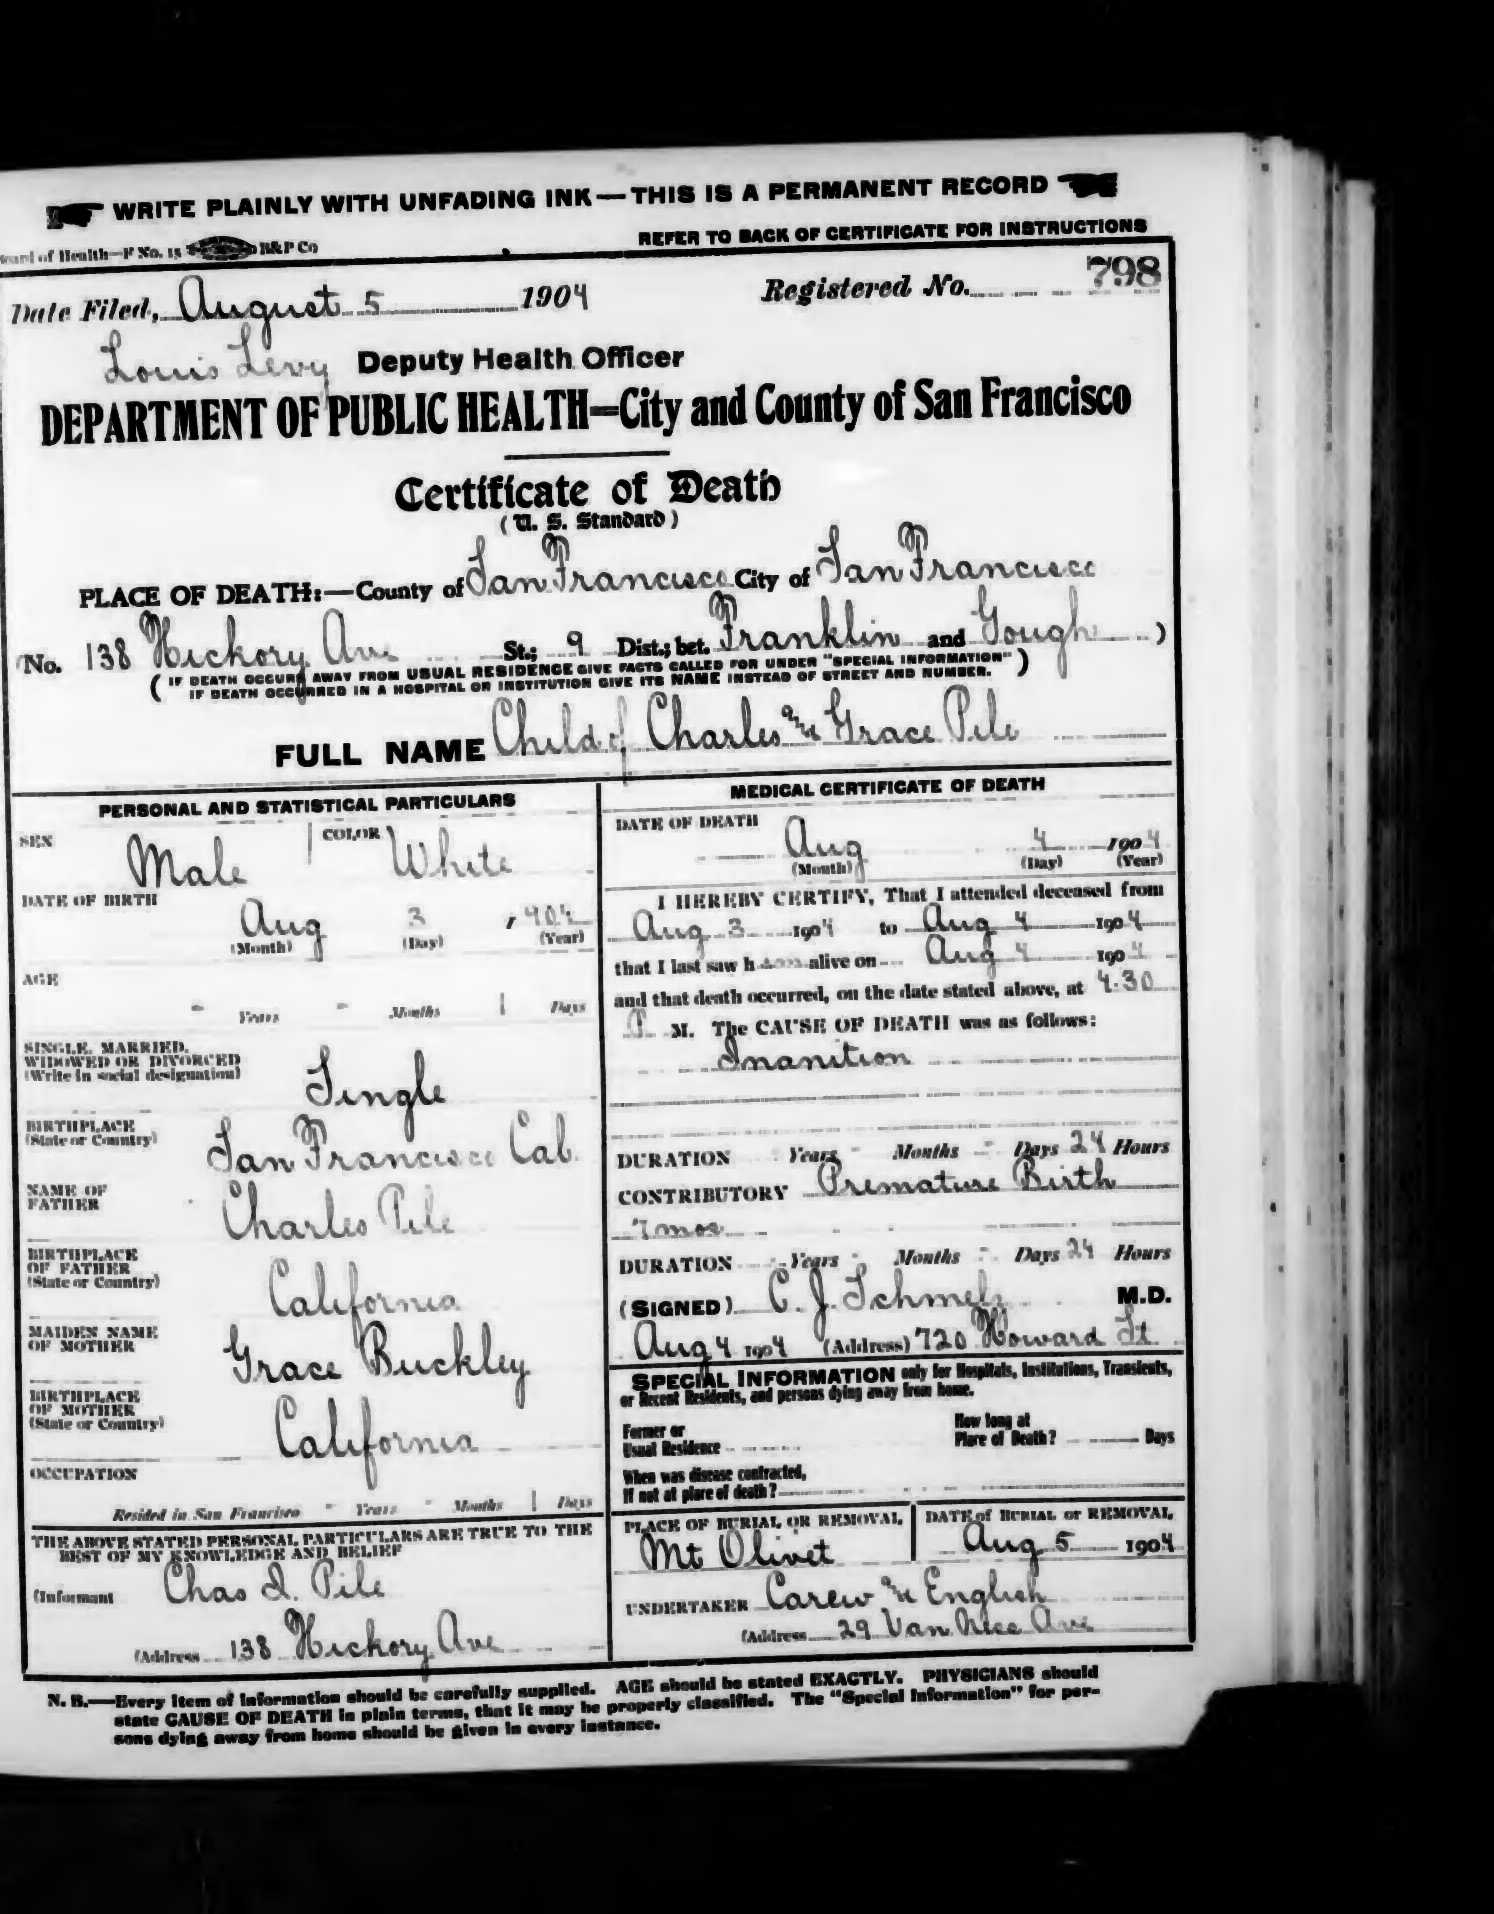 WRITE PLAINLY WITH UNFADING INK — THIS IS A PERMANENT RECORD
Board of Health—F No. 15 B&P Co
REFER TO BACK OF CERTIFICATE FOR INSTRUCTIONS
Date Filed, August 5 1904 Registered No. 798
Louis Levy Deputy Health Officer
DEPARTMENT OF PUBLIC HEALTH=City and County of San Francisco
Certificate of Death
(U. S. Standard)
PLACE OF DEATH:—County of San Francisco City of San Francisco
No. 138 Hickory Ave St.; 9 Dist.; bet. Franklin and Gough )
( IF DEATH OCCURS AWAY FROM USUAL RESIDENCE GIVE FACTS CALLED FOR UNDER "SPECIAL INFORMATION" )
IF DEATH OCCURRED IN A HOSPITAL OR INSTITUTION GIVE ITS NAME INSTEAD OF STREET AND NUMBER.
FULL NAME Child of Charles and Grace Pile
PERSONAL AND STATISTICAL PARTICULARS
SEX Male COLOR White
DATE OF BIRTH
Aug 3 , 904
(Month) (Day) (Year)
AGE
- Years - Months 1 Days
SINGLE, MARRIED,
WIDOWED OR DIVORCED
(Write in social designation)
Single
BIRTHPLACE
(State or Country)
San Francisco Cal.
NAME OF
FATHER
Charles Pile
BIRTHPLACE
OF FATHER
(State or Country)
California
MAIDEN NAME
OF MOTHER
Grace Buckley
BIRTHPLACE
OF MOTHER
(State or Country)
California
OCCUPATION
Resided in San Francisco - Years - Months 1 Days
THE ABOVE STATED PERSONAL PARTICULARS ARE TRUE TO THE
BEST OF MY KNOWLEDGE AND BELIEF
(Informant Chas I. Pile
(Address 138 Hickory Ave
MEDICAL CERTIFICATE OF DEATH
DATE OF DEATH
Aug 4 1904
(Month) (Day) (Year)
I HEREBY CERTIFY, That I attended deceased from
Aug 3 1904 to Aug 4 1904
that I last saw h alive on Aug 4 1904
and that death occurred, on the date stated above, at 4.30
M. The CAUSE OF DEATH was as follows:
Inanition
DURATION Years - Months - Days 24 Hours
CONTRIBUTORY Premature Birth
7 mos
DURATION - Years - Months - Days 24 Hours
(SIGNED) C. J. Schmelz M.D.
Aug 4 1904 (Address) 720 Howard St
SPECIAL INFORMATION only for Hospitals, Institutions, Transients,
or Recent Residents, and persons dying away from home.
Former or
Usual Residence
How long at
Place of Death? Days
When was disease contracted,
If not at place of death?
PLACE OF BURIAL OR REMOVAL
Mt Olivet
DATE of BURIAL or REMOVAL
Aug 5 1904
UNDERTAKER Carew and English
(Address 29 Van Ness Ave
N. B.—Every item of information should be carefully supplied. AGE should be stated EXACTLY. PHYSICIANS should
state CAUSE OF DEATH in plain terms, that it may be properly classified. The "Special Information" for per-
sons dying away from home should be given in every instance.